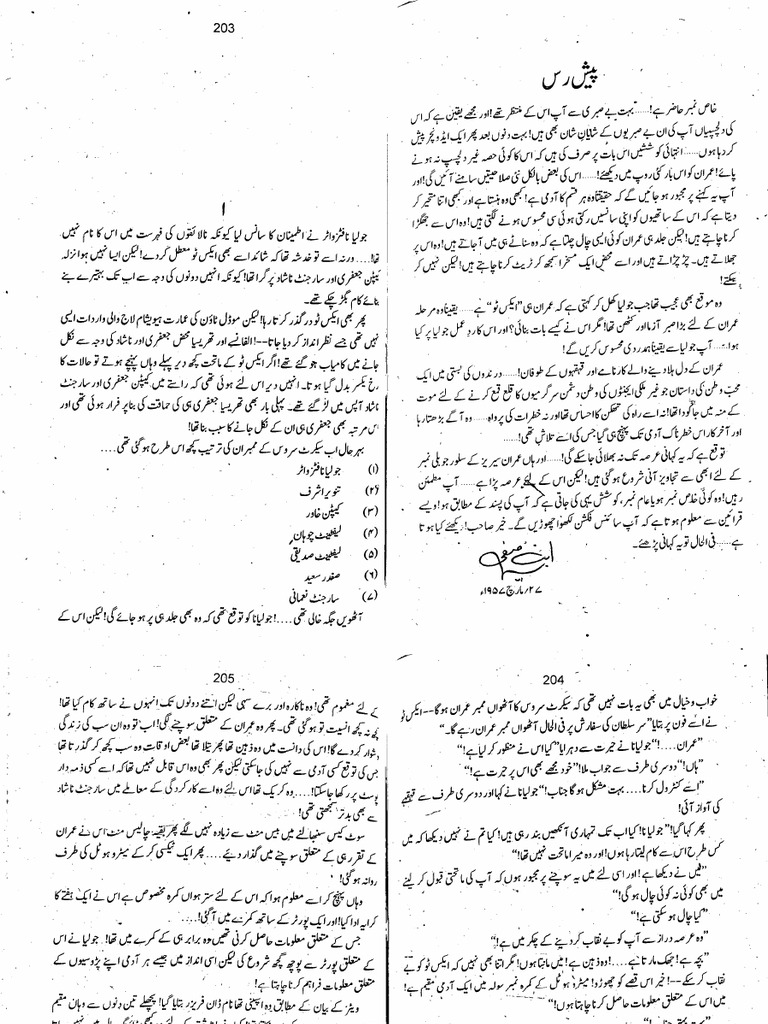 پیش رس
خاص نمبر حاضر ہے!...... بہت بے صبری سے آپ اس کے منتظر تھے! اور مجھے یقین ہے کہ اس
کی دلچسپیاں آپ کی ان بے صبریوں کے شایانِ شان بھی ہیں! بہت دنوں بعد پھر ایک ایڈونچر پیش
کر رہا ہوں...... انتہائی کوششیں اس بات پر صرف کی ہیں کہ اس کا کوئی حصہ غیر دلچسپ نہ ہونے
پائے! عمران کو اس بار کئی روپ میں دیکھئے!...... اس کی بعض بالکل نئی صلاحیتیں سامنے آئیں گی! اور
آپ یہ کہنے پر مجبور ہو جائیں گے کہ حقیقتاً وہ ہر قسم کا آدمی ہے! کبھی وہ ہنستا ہے اور کبھی اتنا متحیر کر
دیتا ہے کہ اس کے ساتھیوں کو اپنی سانسیں رکتی ہوئی سی محسوس ہونے لگتی ہیں! وہ اس سے جھگڑا
کرنا چاہتے ہیں! لیکن جلد ہی عمران کوئی ایسی چال چلتا ہے کہ وہ سناٹے ہی میں آ جاتے ہیں! وہ اس پر
جھلاتے ہیں۔ چڑچڑاتے ہیں اور اسے محض ایک مسخرا سمجھ کر ٹریٹ کرنا چاہتے ہیں! لیکن نہیں کر
سکتے!
وہ موقع بھی عجیب تھا جب جولیا کھل کر کہتی ہے کہ عمران ہی "ایکس ٹو" ہے...... یقیناً وہ مرحلہ
عمران کے لئے بڑا صبر آزما اور کٹھن تھا! مگر اس نے کیسے بات بنائی؟ اور اس کا ردِ عمل جولیا پر کیا
ہوا...... آپ جولیا سے یقیناً ہمدردی محسوس کریں گے!
عمران کے دل ہلا دینے والے کارنامے اور قہقہوں کے طوفان!...... درندوں کی بستی میں ایک
محبِ وطن کی داستان جو غیر ملکی ایجنٹوں کی وطن دشمن سرگرمیوں کا قلع قمع کرنے کے لئے موت
کے منہ میں جا گودا تھا! نہ اسے راہ کی تھکن کا احساس تھا اور نہ خطرات کی پرواہ...... وہ آگے بڑھتا رہا
اور آخر کار اس خطرناک آدمی تک پہنچ ہی گیا جس کی اسے تلاش تھی!
توقع ہے کہ یہ کہانی عرصہ تک نہ بھلائی جا سکے گی!...... اور ہاں عمران سیریز کے سلور جوبلی نمبر
کے لئے ابھی سے تجاویز آنی شروع ہو گئی ہیں! لیکن اس کے لئے عرصہ پڑا ہے...... آپ مطمئن
رہیں! وہ کوئی خاص نمبر ہو یا عام نمبر، کوشش یہی کی جاتی ہے کہ آپ کی پسند کے مطابق ہو! ویسے
قرائین سے معلوم ہوتا ہے کہ آپ سائنس فکشن لکھوا چھوڑیں گے۔ خیر صاحب! دیکھئے کیا ہوتا
ہے...... فی الحال تو یہ کہانی پڑھئے۔
ابن صفی
۲۷/ مارچ ۱۹۵۷ء
203
ا
جولیانا فٹنر واٹر نے اطمینان کا سانس لیا کیونکہ نالائقوں کی فہرست میں اس کا نام نہیں
تھا!.... ورنہ اسے تو خدشہ تھا کہ شائد اسے بھی ایکس ٹو معطل کر دے! لیکن ایسا نہیں ہوا نزلہ
کیپٹن جعفری اور سارجنٹ ناشاد پر گرا تھا! کیونکہ انہیں دونوں کی وجہ سے اب تک بہتیرے بنے
بنائے کام بگڑ چکے تھے۔
پھر بھی ایکس ٹو درگذر کرتا رہا! لیکن موڈل ٹاؤن کی عمارت ہیویشام لاج والی واردات ایسی
نہیں تھی جسے نظر انداز کر دیا جاتا--! الفانسے اور تھریسیا محض جعفری اور ناشاد کی وجہ سے نکل
جانے میں کامیاب ہو گئے تھے! اگر ایکس ٹو کے ماتحت کچھ دیر پہلے وہاں پہنچے ہوتے تو حالات کا
رخ یکسر بدل گیا ہوتا۔ انہیں دیر اس لئے ہوئی تھی کہ راستے میں کیپٹن جعفری اور سارجنٹ
ناشاد آپس میں لڑ گئے تھے۔ پہلی بار بھی تھریسیا جعفری ہی کی حماقت کی بنا پر فرار ہوئی تھی اور
اس مرتبہ بھی جعفری ہی ان کے نکل جانے کا سبب بنا تھا!
بہرحال اب سیکرٹ سروس کے ممبران کی ترتیب کچھ اس طرح ہو گئی تھی....
(۱) جولیانا فٹنر واٹر
(۲) تنویر اشرف
(۳) کیپٹن خاور
(۴) لیفٹیننٹ چوہان
(۵) لیفٹیننٹ صدیقی
(۶) صفدر سعید
(۷) سارجنٹ نعمانی
آٹھویں جگہ خالی تھی....! جولیانا کو توقع تھی کہ وہ بھی جلد ہی پر ہو جائے گی! لیکن اس کے
204
خواب و خیال میں بھی یہ بات نہیں تھی کہ سیکرٹ سروس کا آٹھواں ممبر عمران ہوگا--ایکس ٹو
نے اسے فون پر بتایا "سر سلطان کی سفارش پر فی الحال آٹھواں ممبر عمران رہے گا۔"
"عمران....!" جولیانا نے حیرت سے دہرایا "کیا اس نے منظور کر لیا ہے!"
"ہاں!" دوسری طرف سے جواب ملا! "خود مجھے بھی اس پر حیرت ہے!"
"اسے کنٹرول کرنا.... بہت مشکل ہوگا جناب!" جولیانا نے کہا اور دوسری طرف سے قہقہے
کی آواز آئی!
پھر کہا گیا! "جولیانا! کیا اب تک تمہاری آنکھیں بند رہی ہیں! کیا تم نے نہیں دیکھا کہ میں
کس طرح اس سے کام لیتا رہا ہوں! اور وہ میرا ماتحت نہیں تھا!"
"میں نے دیکھا ہے! اور اسی لئے میں یہ سوچنے پر مجبور ہوں کہ آپ کی ماتحتی قبول کر لینے
میں بھی کوئی نہ کوئی چال ہوگی!"
"کیا چال ہو سکتی ہے!"
"وہ عرصہ دراز سے آپ کو بے نقاب کر دینے کے چکر میں ہے!"
"بچہ ہے! جھک مارتا ہے.... وہ ذہین ہے! میں مانتا ہوں! مگر اتنا بھی نہیں کہ ایکس ٹو کو بے
نقاب کر سکے--! خیر اس قصے کو چھوڑو! میٹرو ہوٹل کے کمرہ نمبر سولہ میں ایک آدمی مقیم ہے!
میں اس کے متعلق معلومات حاصل کرنا چاہتا ہوں!"
205
کے لئے مغموم تھی! وہ ناکارہ اور برے سہی لیکن اتنے دنوں تک انہوں نے ساتھ کام کیا تھا!
کچھ نہ کچھ انسیت تو ہو گئی تھی۔ پھر وہ عمران کے متعلق سوچنے لگی! اب تو وہ ان سب کی زندگی
دشوار کر دے گا! اس کی دانست میں وہ ذہین تھا پھرتیلا تھا بعض اوقات وہ سب کچھ کر گذرتا تھا
جس کی توقع کسی آدمی سے نہیں کی جا سکتی لیکن پھر بھی وہ اس قابل نہیں تھا کہ اسے کسی ذمہ دار
پوسٹ پر رکھا جا سکتا!.... وہ کریک تھا اس لئے وہ اسے کارکردگی کے معاملے میں سارجنٹ ناشاد
سے بھی بدتر سمجھتی تھی!
سوٹ کیس سنبھالنے میں بیس منٹ سے زیادہ نہیں لگے پھر بقیہ چالیس منٹ اس نے عمران
کے تقرر ہی کے متعلق سوچنے میں گذار دیئے.... پھر ایک ٹیکسی کر کے میٹرو ہوٹل کی طرف
روانہ ہو گئی!
وہاں پہنچ کر اسے معلوم ہوا کہ اس کے لئے ستر ہواں کمرہ مخصوص ہے اس نے ایک ہفتے کا
کرایہ ادا کیا! اور ایک پورٹر کے ساتھ کمرے میں آ گئی!....
جس کے متعلق معلومات حاصل کرنی تھیں وہ برابر ہی کے کمرے میں تھا! جولیانا نے اس
کے متعلق پورٹر سے پوچھ گچھ شروع کی لیکن اسی انداز میں جیسے ہر آدمی اپنے پڑوسیوں کے
متعلق معلومات فراہم کرنا چاہتا ہے!
ویٹر کے بیان کے مطابق وہ اسپینی تھا نام ڈان فریزر بتایا گیا! پچھلے تین دنوں سے وہاں مقیم